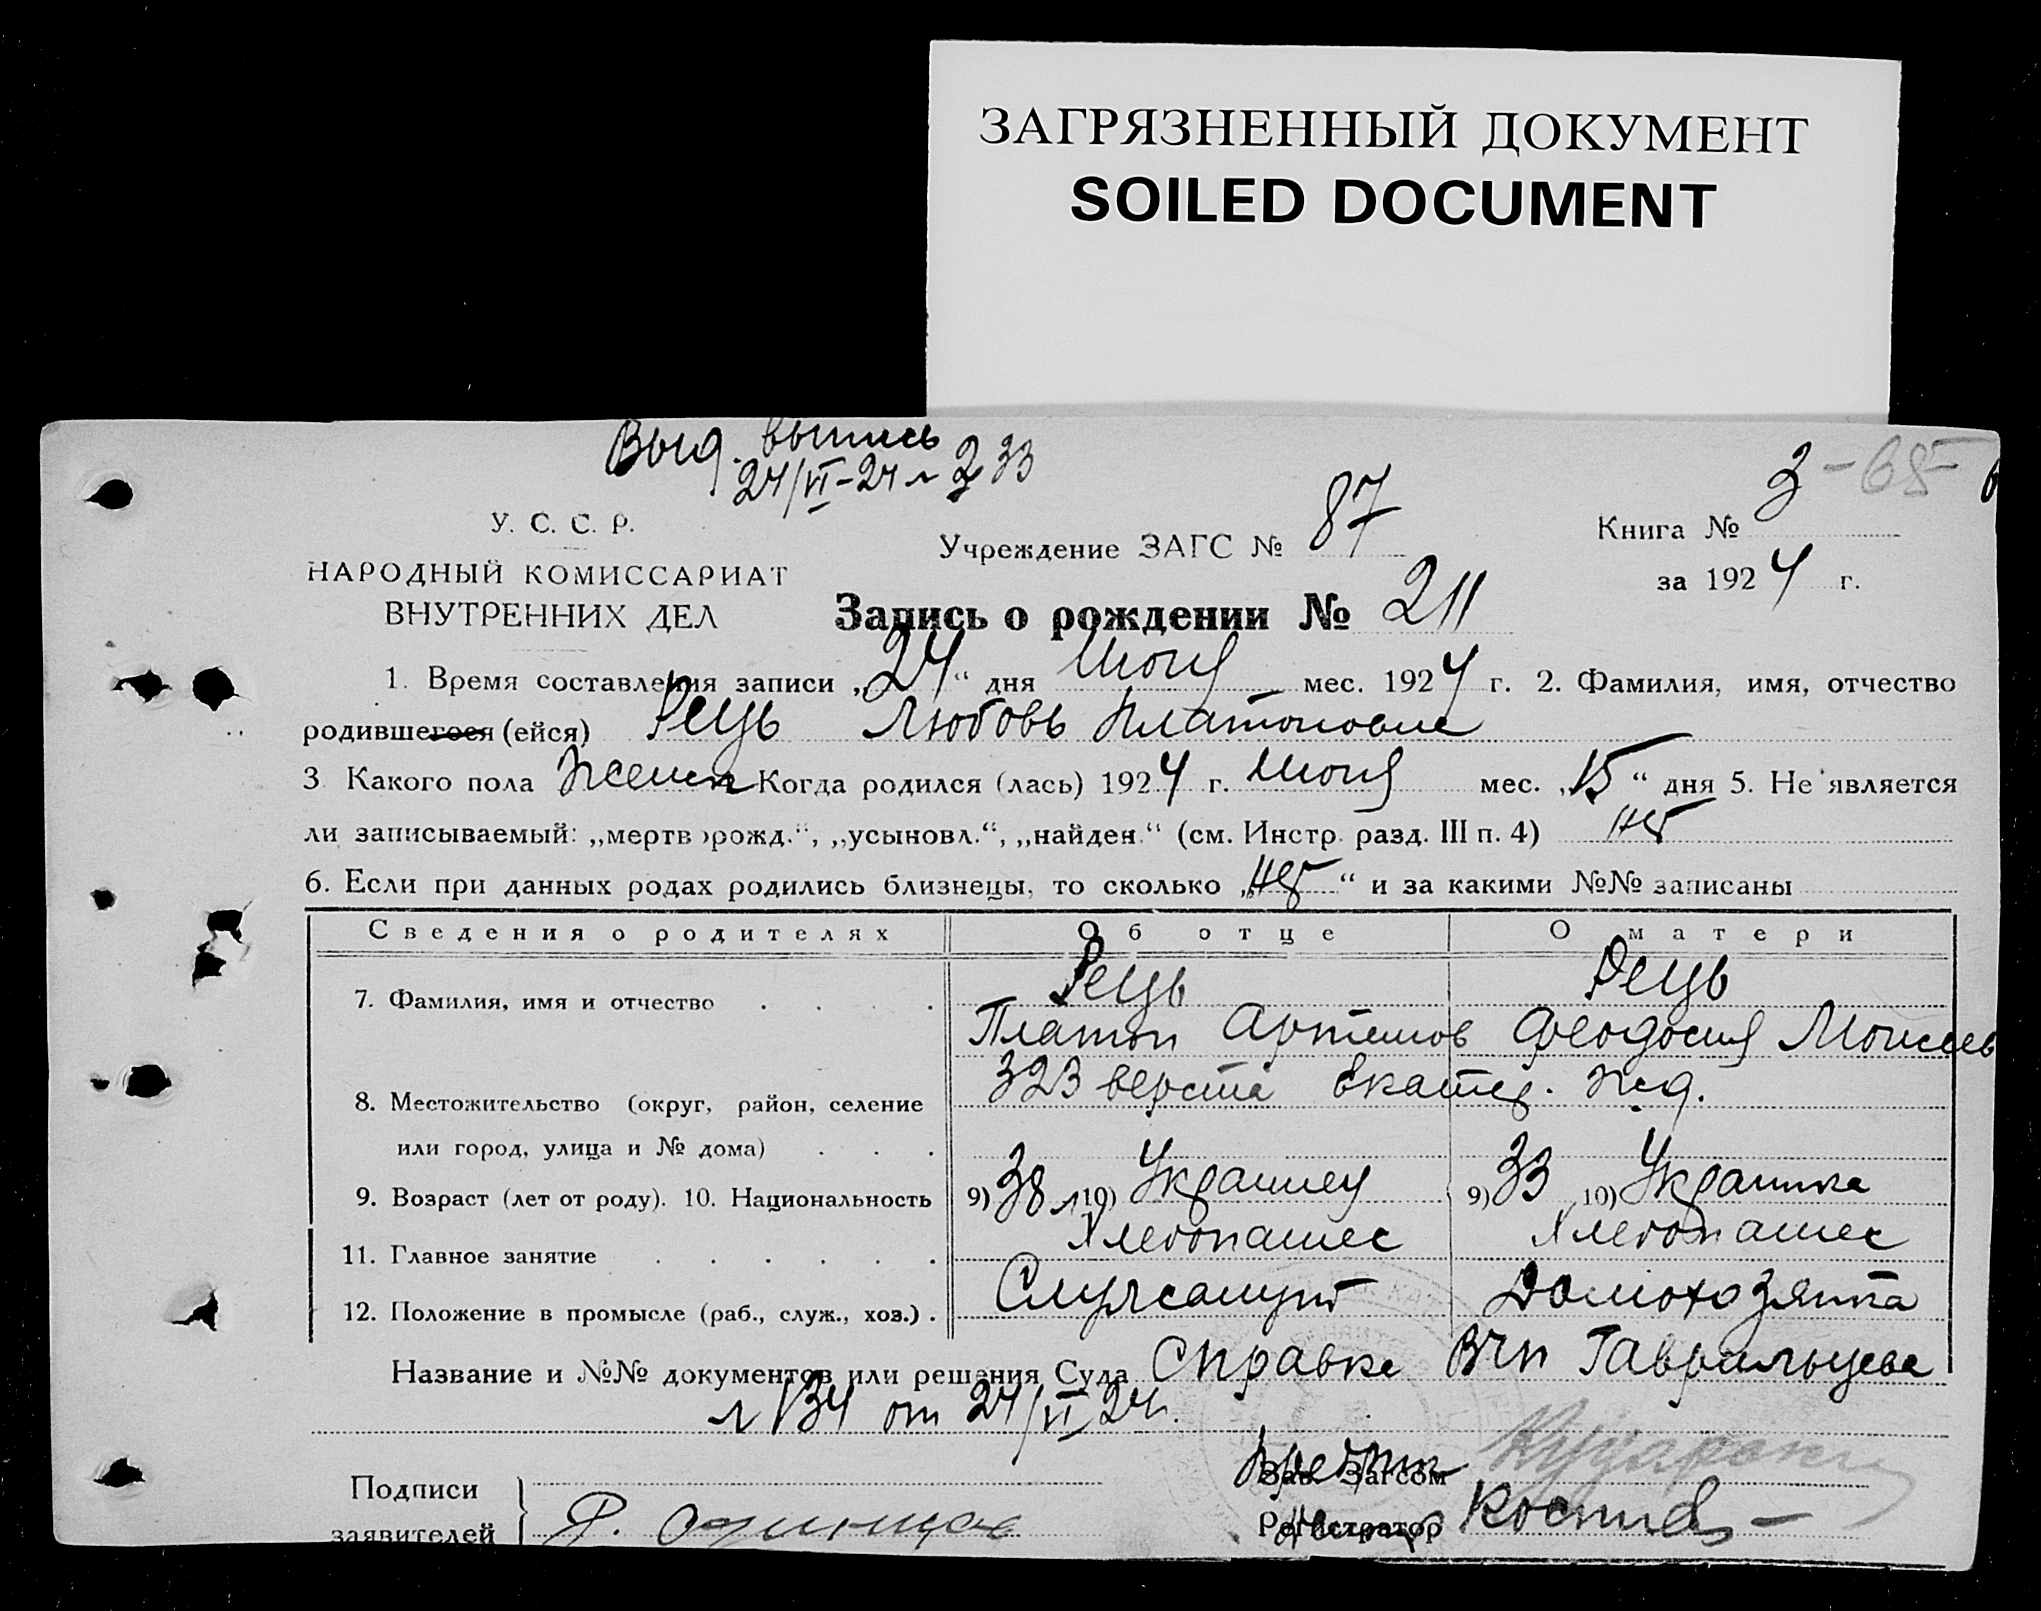 ЗАГРЯЗНЕННЫЙ ДОКУМЕНТ
SOILED DOCUMENT
Выд. выпись
24/VI-24 № 233
3 - 65
У. С. С. Р.
НАРОДНЫЙ КОМИССАРИАТ
ВНУТРЕННИХ ДЕЛ
Учреждение ЗАГС № 87
Книга №
за 1924 г.
Запись о рождении № 211
1. Время составления записи „24“ дня Июня мес. 1924 г. 2. Фамилия, имя, отчество
родившегося (ейся) Рець Любовь Платоновна
3. Какого пола Женск Когда родился (лась) 1924 г. Июня мес. „15“ дня 5. Не является
ли записываемый: „мертворожд.“, „усыновл.“, „найден.“ (см. Инстр. разд. III п. 4) нет
6. Если при данных родах родились близнецы, то сколько „нет“ и за какими №№ записаны
Сведения о родителях Об отце О матери
7. Фамилия, имя и отчество Рець Рець
Платон Артемов Феодосия Моисеев
8. Местожительство (округ, район, селение 323 верста Екатер. жд.
или город, улица и № дома)
9. Возраст (лет от роду). 10. Национальность 9) 38 л 10) Украинец 9) 33 10) Украинка
11. Главное занятие Хлебопашес Хлебопашес
12. Положение в промысле (раб., служ., хоз.) Служащий Домохозяйка
Название и №№ документов или решения Суда Справка ВЧп Гаврильцева
№ 134 от 24/VI 24г.
Подписи
заявителей
Зав. Загсом
Регистратор